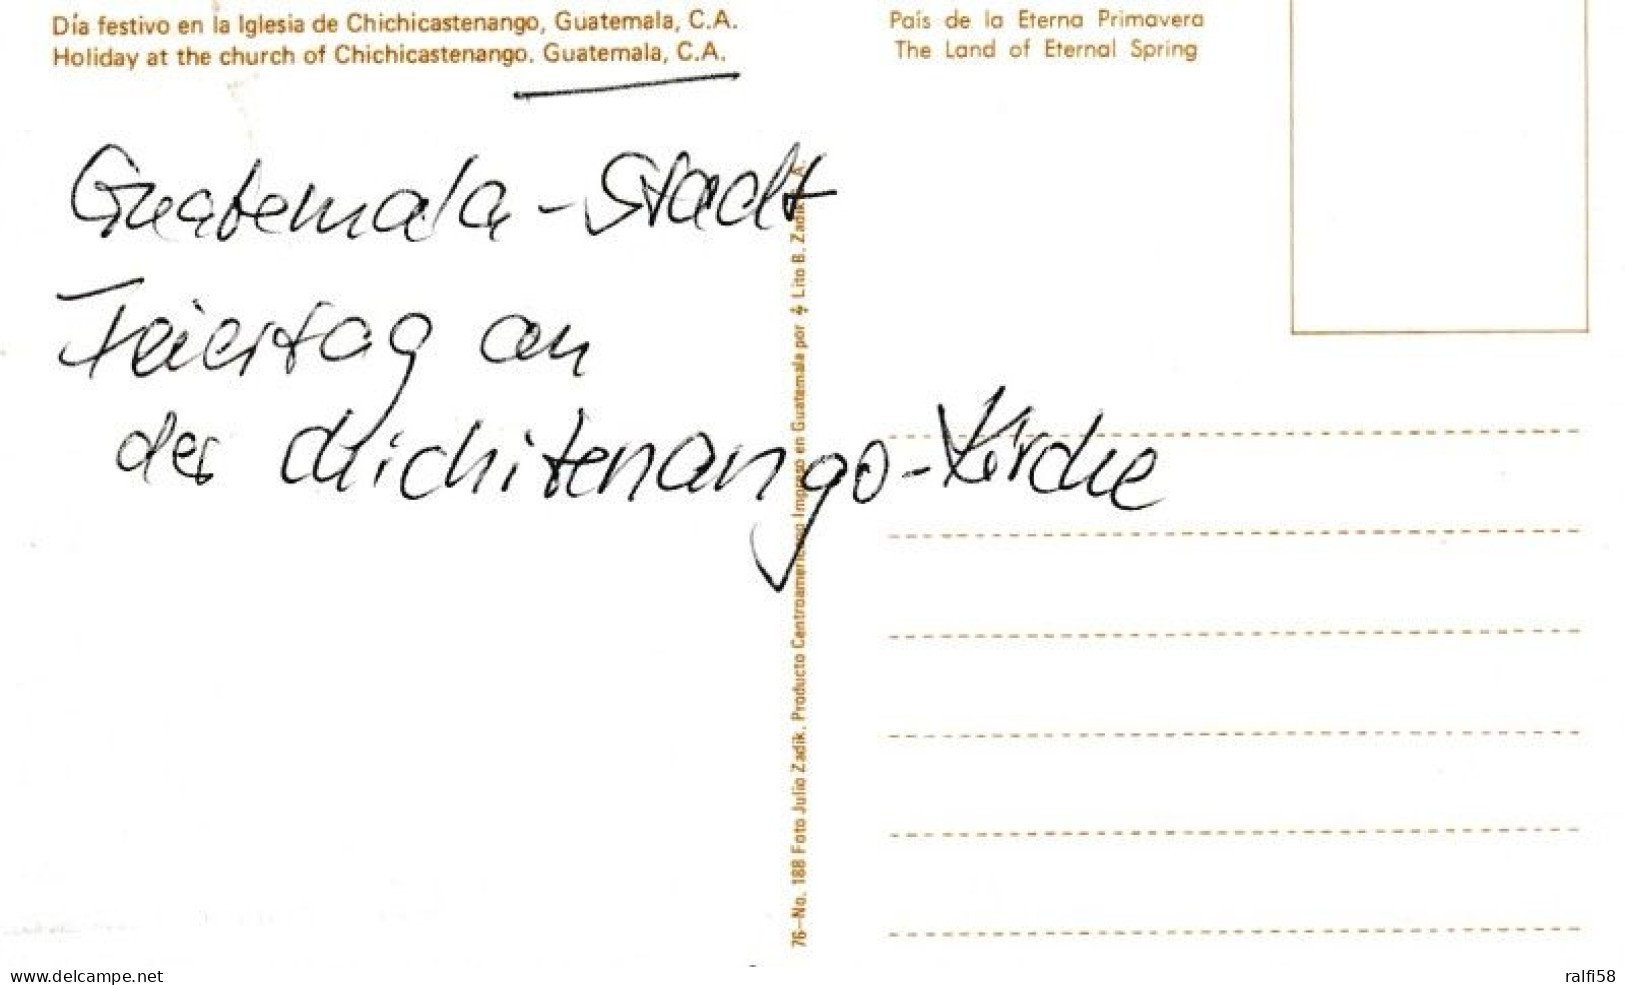 Día festivo en la Iglesia de Chichicastenango, Guatemala, C.A.
Holiday at the church of Chichicastenango. Guatemala, C.A.
País de la Eterna Primavera
The Land of Eternal Spring
Guatemala-Stadt
Feiertag an
der Chichitenango-Kirche
76—No. 188 Foto Julio Zadik. Producto Centroamericano Impreso en Guatemala por Lito B. Zadik
www.delcampe.net
ralfi58